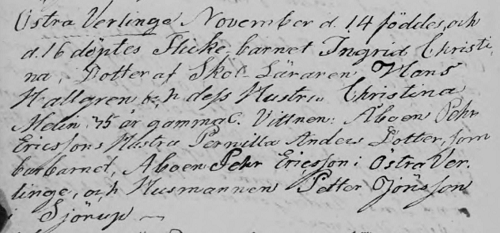 Östra Verlinge November d. 14 föddes, och
d. 16 döptes Flicke barnet Ingrid Christi-
na, Dotter af Skol Läraren Måns
Hallgren, och dess Hustru Christina
Melin 35 år gammal. Vittnen: Åboen Pehr
Ericssons Hustru Pernilla Anders Dotter, som
bar barnet, Åboen Pehr Ericsson i Östra Ver-
linge, och Husmannen Petter Jönsson
i Sjörup